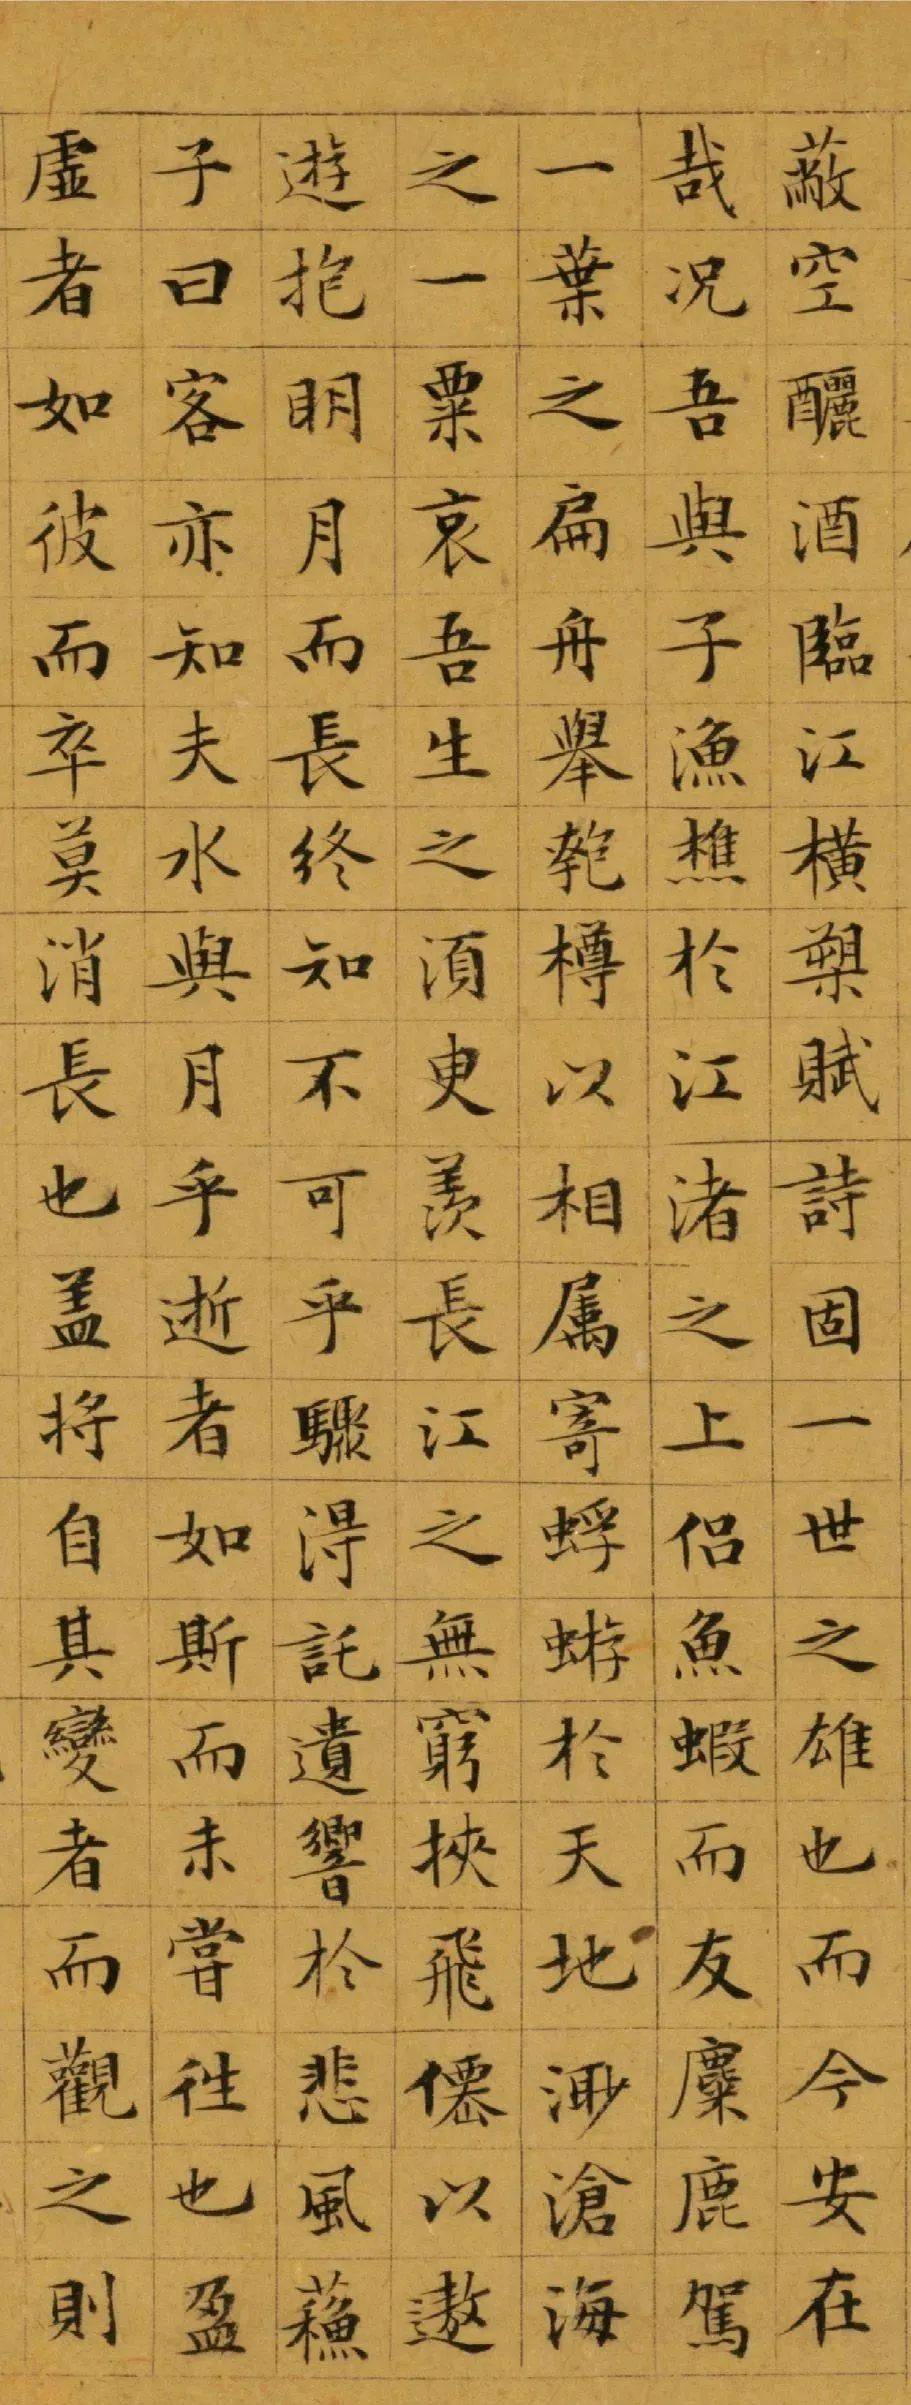 蔽空釃酒臨江橫槊賦詩固一世之雄也而今安在
哉况吾與子漁樵於江渚之上侣魚蝦而友麋鹿駕
一葉之扁舟舉匏樽以相属寄蜉蝣於天地渺滄海
之一粟哀吾生之須臾羨長江之無窮挾飛僊以遨
遊抱明月而長終知不可乎驟得託遺響於悲風蘓
子曰客亦知夫水與月乎逝者如斯而未嘗徃也盈
虛者如彼而卒莫消長也盖将自其變者而觀之則